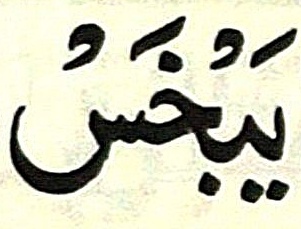 يَبُخَسُ